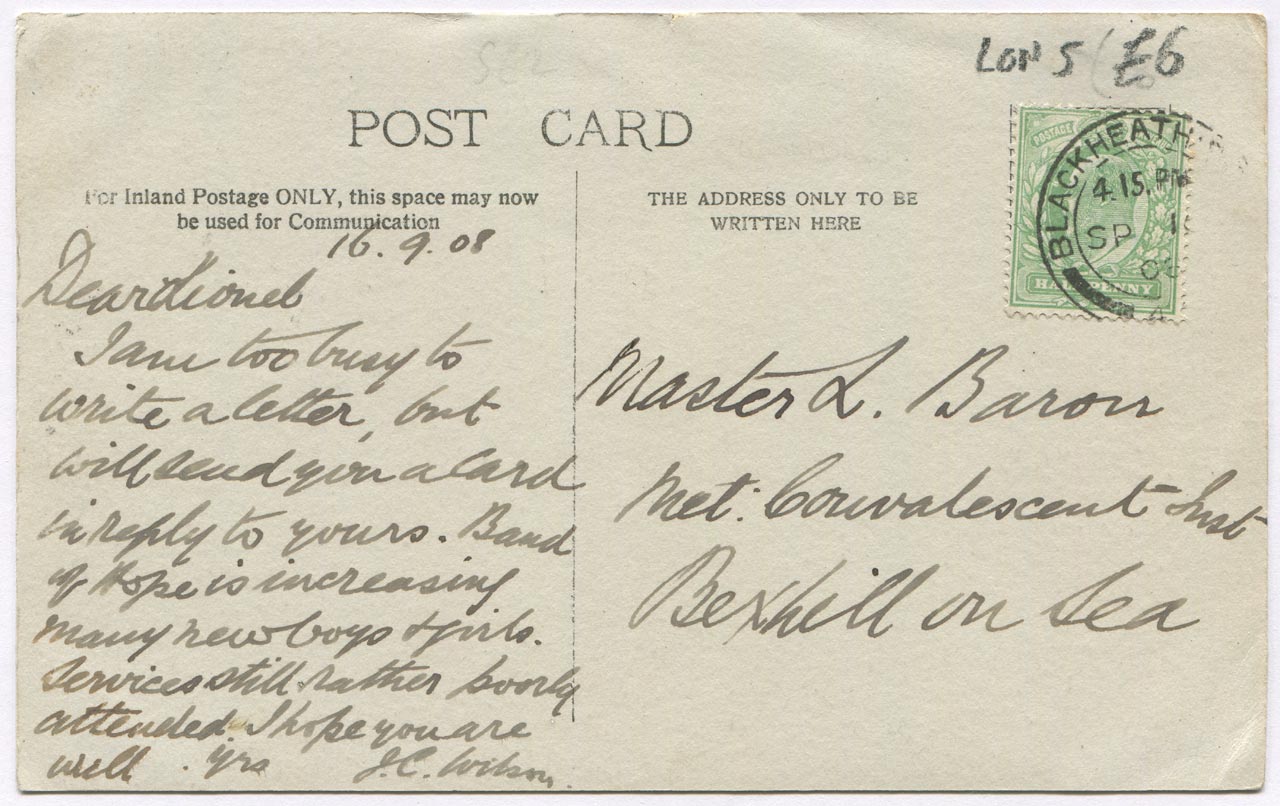 LON 5 £6
POST CARD
For Inland Postage ONLY, this space may now
be used for Communication
16.9.08
Dear Lionel
I am too busy to
write a letter, but
will send you a card
in reply to yours. Band
of Hope is increasing
many new boys & girls.
Services still rather poorly
attended. I hope you are
well. Yrs J.C. Wilson.
THE ADDRESS ONLY TO BE
WRITTEN HERE
POSTAGE
HALFPENNY
BLACKHEATH
4.15.PM
SP
08
Master L. Baron
Met: Convalescent Inst
Bexhill on Sea